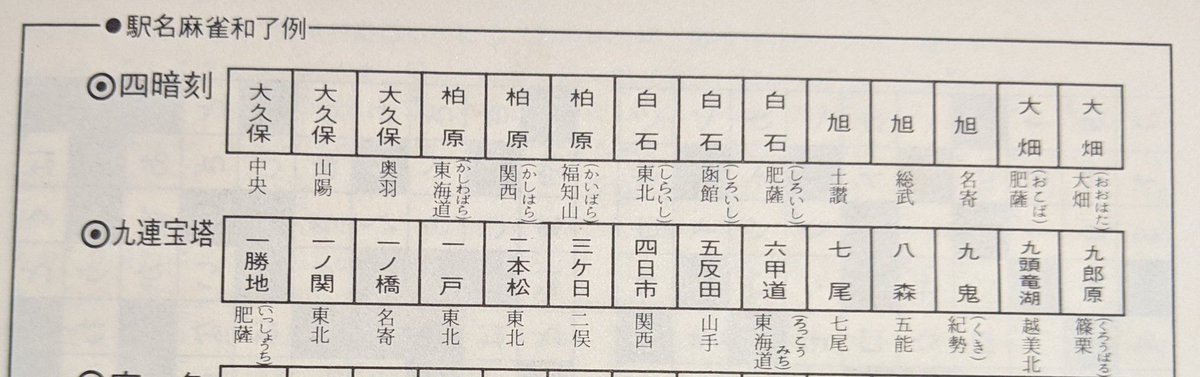 ●駅名麻雀和了例
◉四暗刻 大久保 大久保 大久保 柏原 柏原 柏原 白石 白石 白石 旭 旭 旭 大畑 大畑
中央 山陽 奥羽 東海道(かしわばら) 関西(かしはら) 福知山(かいばら) 東北(しらいし) 函館(しろいし) 肥薩(しろいし) 土讃 総武 名寄 肥薩(おこば) 大畑(おおはた)
◉九連宝塔 一勝地 一ノ関 一ノ橋 一戸 二本松 三ケ日 四日市 五反田 六甲道 七尾 八森 九鬼 九頭竜湖 九郎原
肥薩(いっしょうち) 東北 名寄 東北 東北 二俣 関西 山手 東海道(ろっこうみち) 七尾 五能 紀勢(くき) 越美北 篠栗(くろうばる)